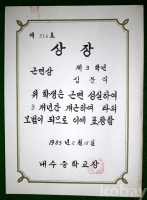 제 호
상 장
근면상
제 3 학년
위 학생은 근면 성실하여
3 개년간 개근하여 타의
모범이 되므로 이에 표창함
1983 년 2 월 일
내수중학교장
kobay